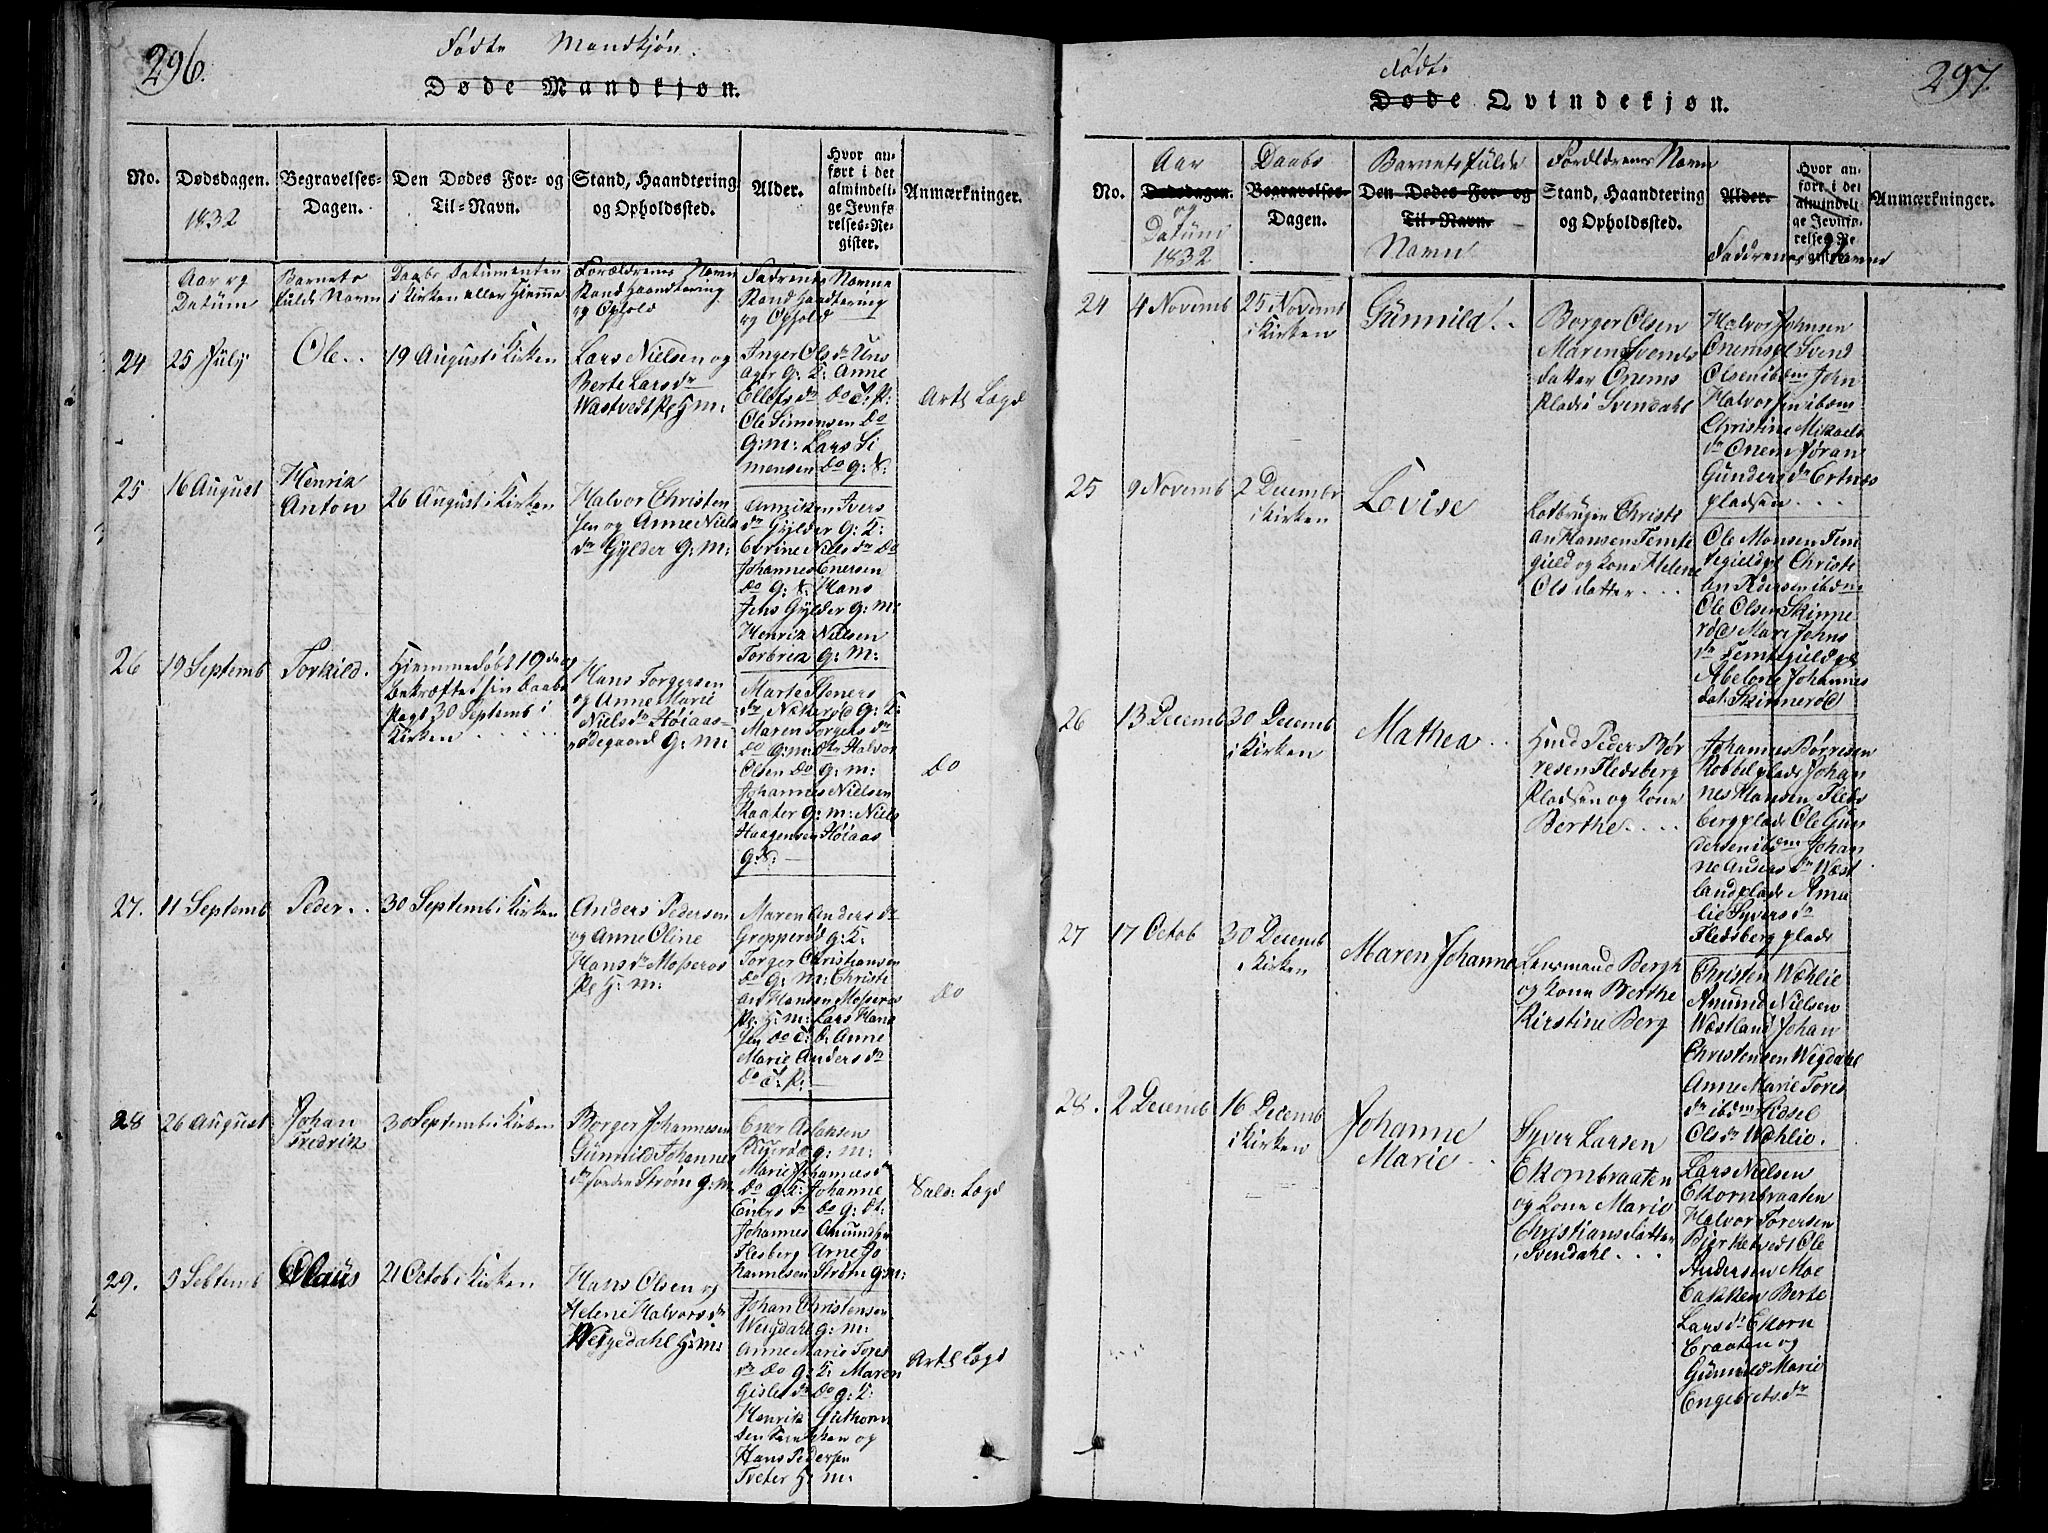 296.
Fødte Mandkjøn.
Døde Mandkjøn.
No.
Dødsdagen.
1832
Begravelses-
Dagen.
Den Dødes For- og
Til-Navn.
Stand, Haandtering
og Opholdssted.
Alder.
Hvor an-
ført i det
almindeli-
ge Jevnfø-
relses-Re-
gister.
Anmærkninger.
Aar og
Datum
Barnets
fulde Navn
Daabs Datumenten
i Kirken eller Hjemme
Forældrenes Navn
Stand Haandtering
og Ophold
Fadrenes Navne
Stand Haandtering
og Ophold
24
25 July
Ole..
19 August i Kirken
Lars Nielsen og
Berte Larsdr
Wastvedt
Inger Olsdr Uns
ager g: K: Anne
Ellefsdr Do
Ole Simensen Do
g: m: Lars Si
mensen Do g:
Lægd
25
16 August
Henrik
Anton
26 August i Kirken
Halvor Christen
sen og Anne Niels
dr Gylder G: M:
Anniken Ivers
dr Gylder G: K:
Corine Nielsdr Do
Johannes Enersen
Do g: Hans
Jens Gylder g: m:
Henrik Nielsen
Torbrik g: M:
26
19 Septemb
Torkild.
Hiemmedøbt 19 de og
bekræftet sin Daabs
Pagt 30 Septemb i
Kirken
Hans Torgersen
og Anne Marie
Nielsdr Høiaas
ødegaard G: M:
Marte
Maren Torgersdr
Do G: m: Halvor
Olsen Do g: m:
Johannes Nielsen
Raater g: m: Niels
Haagensen Høiaas
Do
27.
11 Septemb
Peder..
30 Septemb i Kirken
Anders Pedersen
og Anne Oline
Hansdr Mosseros
Maren Andersdr
Gropperød g: K:
Torger Christiansen
Do g: m: Christi
an Hansen Mosseros
Lars Hans
sen Do Anne
Marie Andersdr
Do
Do
28
26 August
Johan
Fredrik
30 Septemb i Kirken
Borger Johannesen
Gunnild Johannes
dr Strøm g: m:
Ener Aslaksen
g: m:
Marie Johannesdr
Do g: K: Johanne
Einersdr Do g:
Johannes Amundsen
Flesberg Arne Jo
hannesen Strøm g: m:
Lægd
29.
5 Septemb
Claus
21 Octob i Kirken
Hans Olsen og
Helene Halvorsdr
Weigedahl
Johan Christensen
Weigdahl g: m:
Anne Marie Tores
dr Do g: K: Maren
Gislesdr Do g: K:
Henrik Guthorm
sen og
Hans Pedersen
Tveter
Lægd
297.
Fødte
Døde Qvindekjøn.
No.
Aar
Dødsdagen.
og
Datum
1832
Daabs
Begravelses-
Dagen.
Barnets fulde
Den Dødes For- og
Til-Navn.
Navn
Forældrenes Navn
Stand, Haandtering
og Opholdssted.
Alder.
Hvor an-
ført i det
almindeli-
ge Jevnfø-
relses-Re-
gister.
Faddrenes Navne
Anmærkninger.
24
4 Novemb
25 Novemb
i Kirken
Gunnild..
Borger Olsen
Maren Svends
datter Enems
Svendahl
Halvor Johnsen
Svend
Olsen ibdm John
Halvorsen ibdm
Christine Mikaels
dr Enem Jøran
Gundersdr
pladsen...
25
9 Novemb
2 Decembr
i Kirken
Lovise
Christi
an Hansen Temte
gield og Kone Helene
Olsdatter...
Ole Monsen Tem
tegield Christi
an Pedersen ibdm
Ole Olsen Skinne
rød Mari Johns
dr Temtegield
Abelone Johannes
dat. Skinnerød
26
13 Decemb
30 Decemb
i Kirken
Mathea..
Huusmd Peder Bør
resen Fledsberg
Pladsen og Kone
Berthe....
Johannes Børresen
Johan
nes Hansen Fleds
berg plads Ole Gun
dersen ibdm Johan
ne Andersdr West
land plads Ama
lie Syversdr
Fledsberg plads
27
17 Octob
30 Decemb
i Kirken
Maren Johanne
Lensmand Bergh
og Kone Berthe
Kirstine Berg
Christen Wæhlie
Amund Nielsen
Wæstland Johan
Christensen Wigdahl
Anne Marie Tores
dr ibdm Sidsel
Olsdr Wæhlie.
28.
2 Decemb
16 Decemb
i Kirken
Johanne
Marie..
Syver Larsen
Ekornbraaten
og Kone Marie
Christiansdatter
i Svendahl...
Lars Nielsen
Ekornbraaten
Halvor Torersen
Bjerketvedt Ole
Andersen Moe
bakken Berte
Larsdr Ekorn
braaten og
Gunnild Marie
Engebretsdr